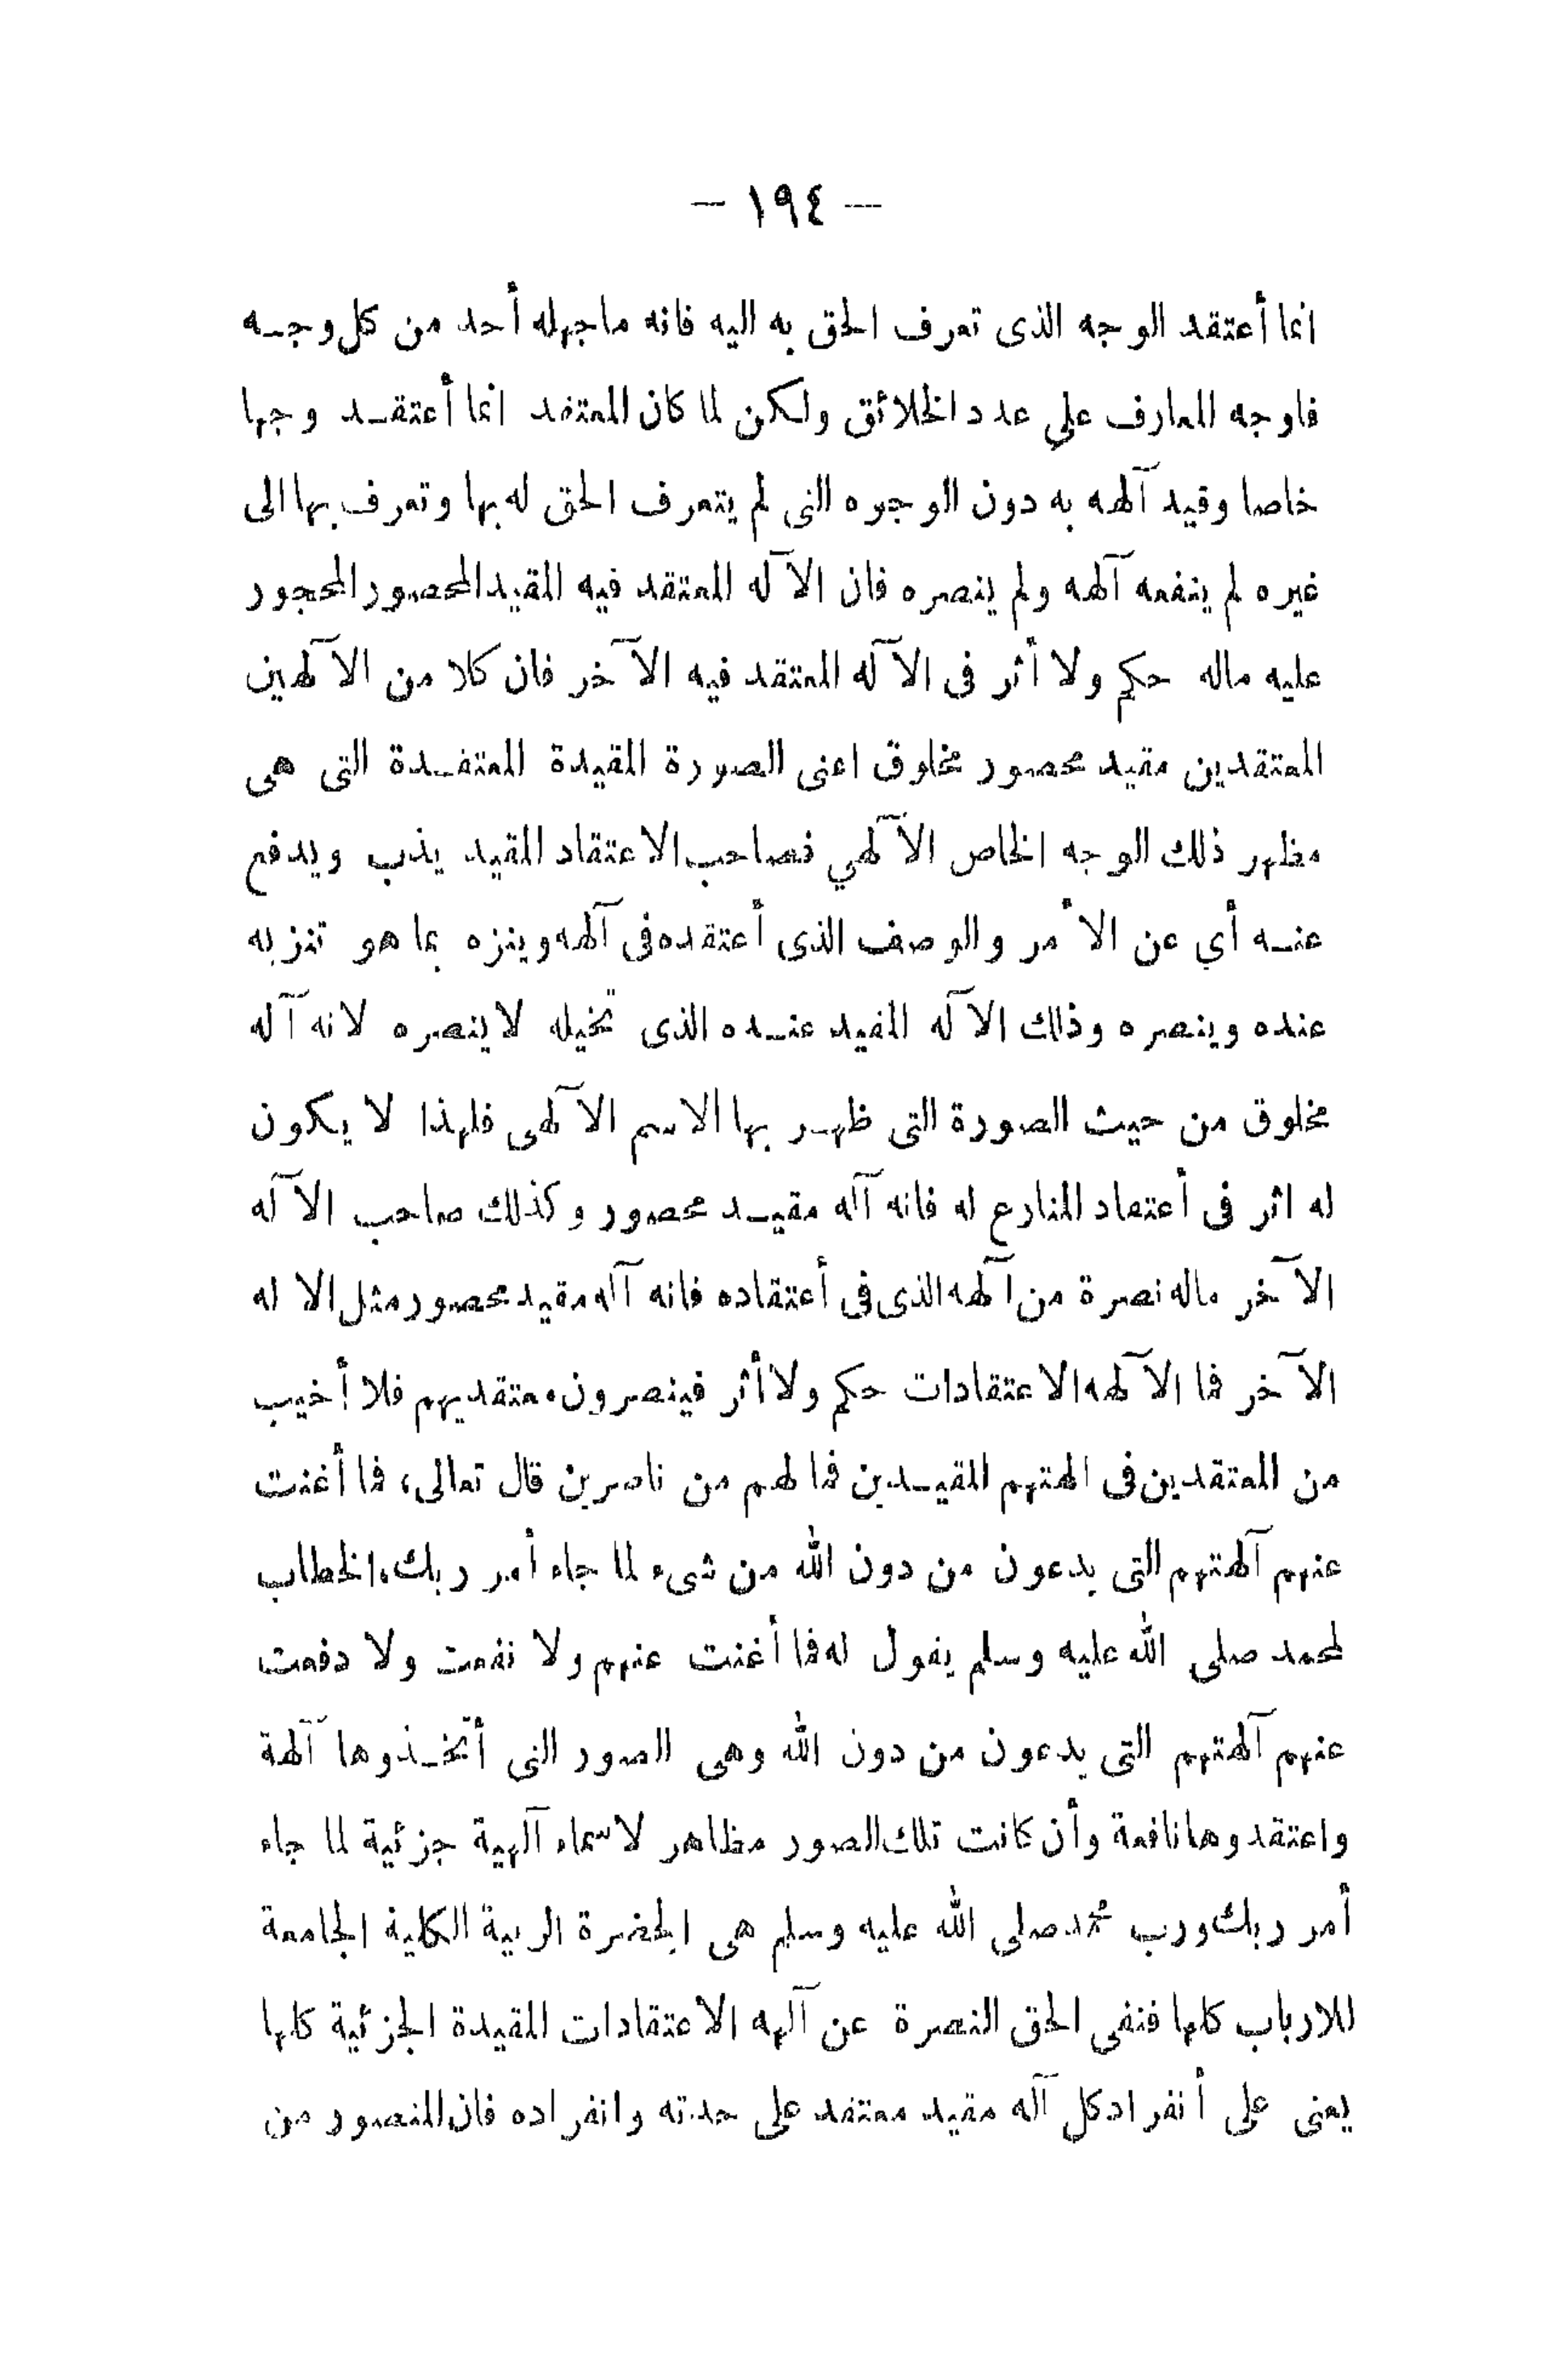 — ١٩٤ —
انما أعتقد الوجه الذى تعرف الحق به اليه فانه ماجهله أحد من كل وجـه
فاوجه المعارف علي عدد الخلائق ولكن لما كان المعتقد انما أعتقـد وجها
خاصا وقيد آلهه به دون الوجوه التى لم يتعرف الحق له بها وتعرف بها الى
غيره لم ينفعه آلهه ولم ينصره فان الآله المعتقد فيه المقيد المحصور المحجور
عليه ماله حكم ولا أثر فى الآله المعتقد فيه الآخر فان كلا من الآلهين
المعتقدين مقيد محصور مخلوق اعنى الصورة المقيدة المعتقـدة التى هى
مظهر ذلك الوجه الخاص الآلهي فصاحب الاعتقاد المقيد يذب ويدفع
عنـه أي عن الأمر والوصف الذى أعتقده فى آلهه وينزه بما هو تنزيه
عنده وينصره وذلك الآله المقيد عنـده الذى تخيله لاينصره لانه آله
مخلوق من حيث الصورة التى ظهـر بها الاسم الآلهى فلهذا لا يكون
له اثر فى أعتقاد المنازع له فانه آله مقيـد محصور وكذلك صاحب الآله
الآخر ماله نصرة من آلهه الذى فى أعتقاده فانه آله مقيد محصور مثل الا له
الآخر فما الآلهه الاعتقادات حكم ولا أثر فينصرون معتقديهم فلا أخيب
من المعتقدين فى الهتهم المقيـدين فما لهم من ناصرين قال تعالى، فما أغنت
عنهم آلهتهم التى يدعون من دون الله من شىء لما جاء أمر ربك، الخطاب
لمحمد صلى الله عليه وسلم يقول له فما أغنت عنهم ولا نفعت ولا دفعت
عنهم آلهتهم التى يدعون من دون الله وهى الصور التى أتخـذوها آلهة
واعتقدوها نافعة وأن كانت تلك الصور مظاهر لاسماء آلهية جزئية لما جاء
أمر ربك ورب محمد صلى الله عليه وسلم هى الحضرة الربية الكلية الجامعة
للارباب كلها فنفى الحق النصرة عن آلهه الاعتقادات المقيدة الجزئية كلها
يعنى على أنفراد كل آله مقيد معتقد على حدته وانفراده فان المنصور من